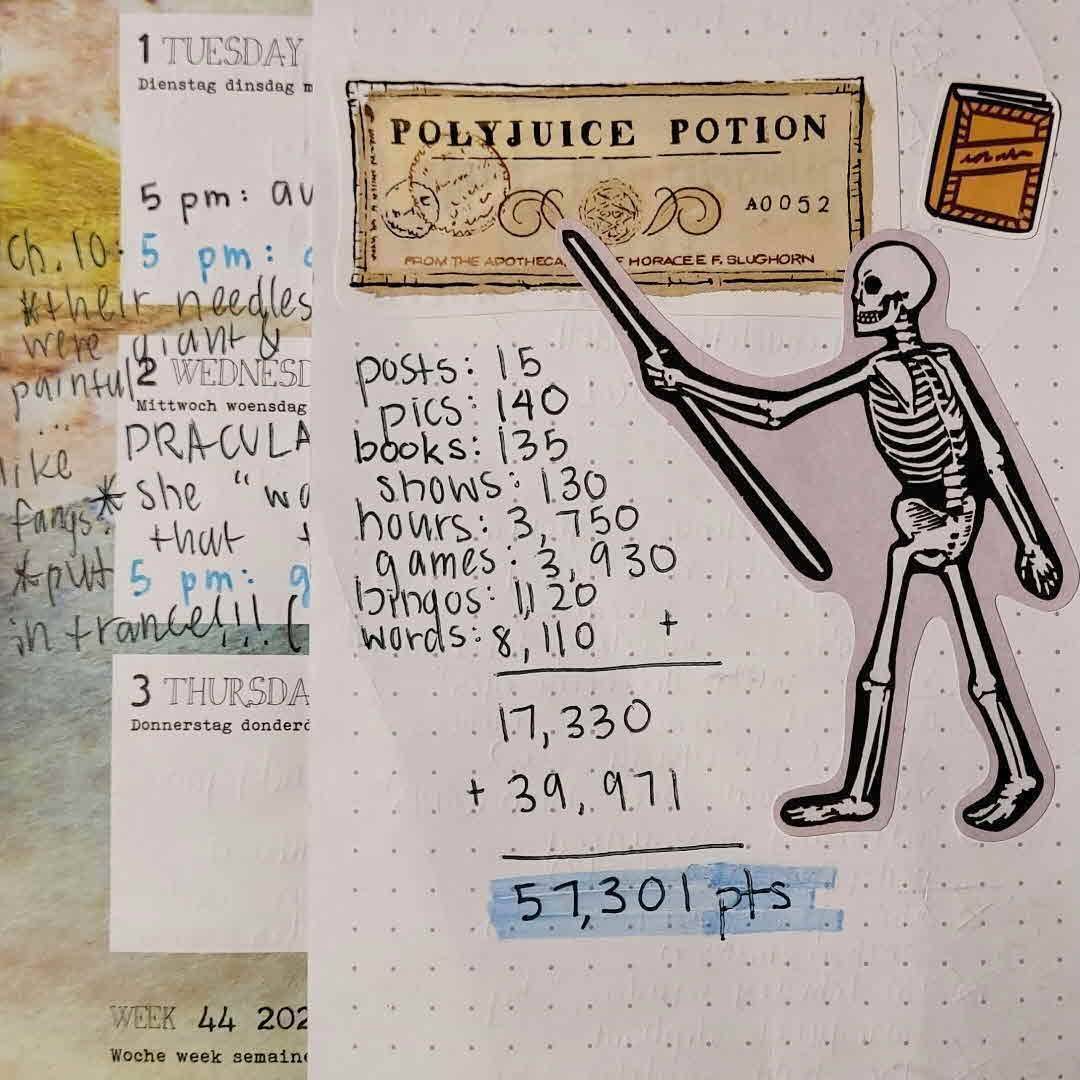 1 TUESDAY
Dienstag dinsdag m
5 pm: au
ch. 10: 5 pm:
*their needles
were giant &
painful
...
like
fangs?
2 WEDNESD
Mittwoch woensdag
DRACULA
* she "wo
that
*put 5 pm: g
in trance!!! (
3 THURSDA
Donnerstag donderd
WEEK 44 202
Woche week semaine
POLYJUICE POTION
A0052
FROM THE APOTHECA OF HORACEE F. SLUGHORN
posts: 15
pics: 140
books: 135
shows: 130
hours: 3,750
games: 3,930
bingos: 1,120
words: 8,110 +
17,330
+ 39,971
57,301 pts